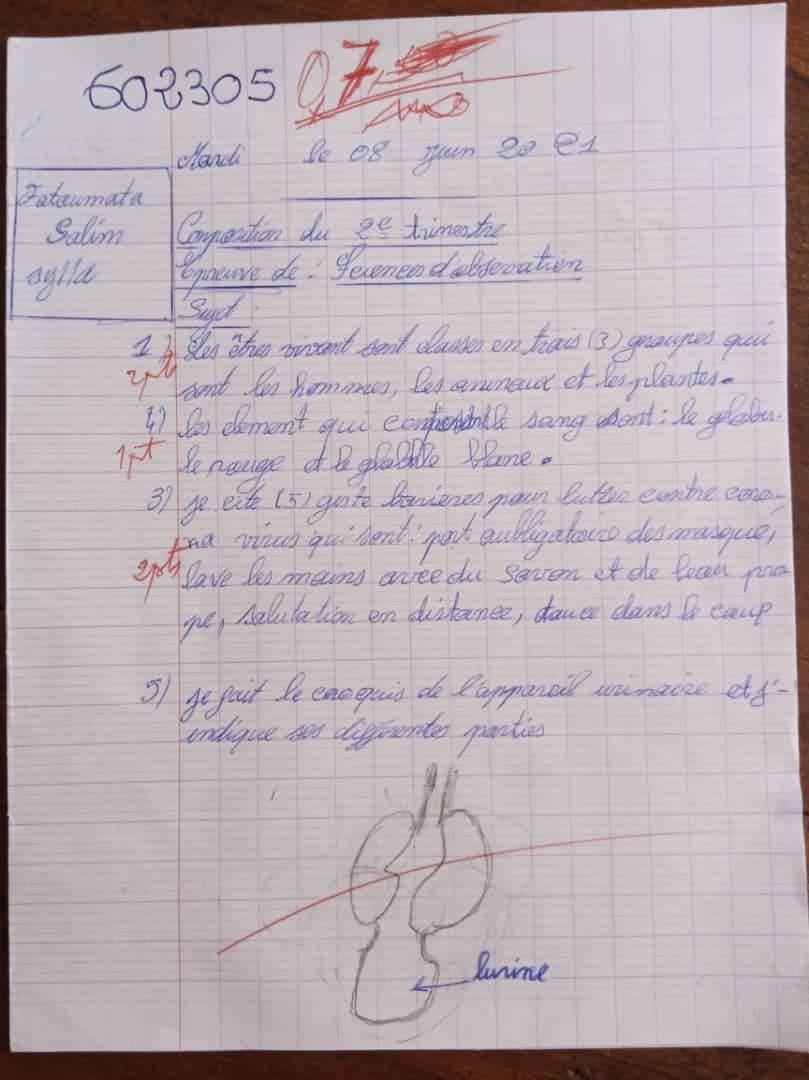 602305 07
Mardi le 08 Juin 2021
Fatoumata
Salim
sylla
Composition du 2e trimestre
Epreuve de : Sciences d'observation
Sujet :
1) Les êtres vivant sont classes en trais (3) groupes qui
2pts sont les hommes, les animaux et les plantes.
4) les element qui composent le sang sont : le globu-
1pt le rouge et le globule blanc.
3) je cite (5) geste barières pour lutter contre coro-
na virus qui sont : port aubligatoire des masque,
2pts lave les mains avec du savon et de leau pro
pe, salutation en distance, tousse dans le coup
5) je fait le croquis de l'appareil urinaire et j'-
indique ses différentes parties
lurine